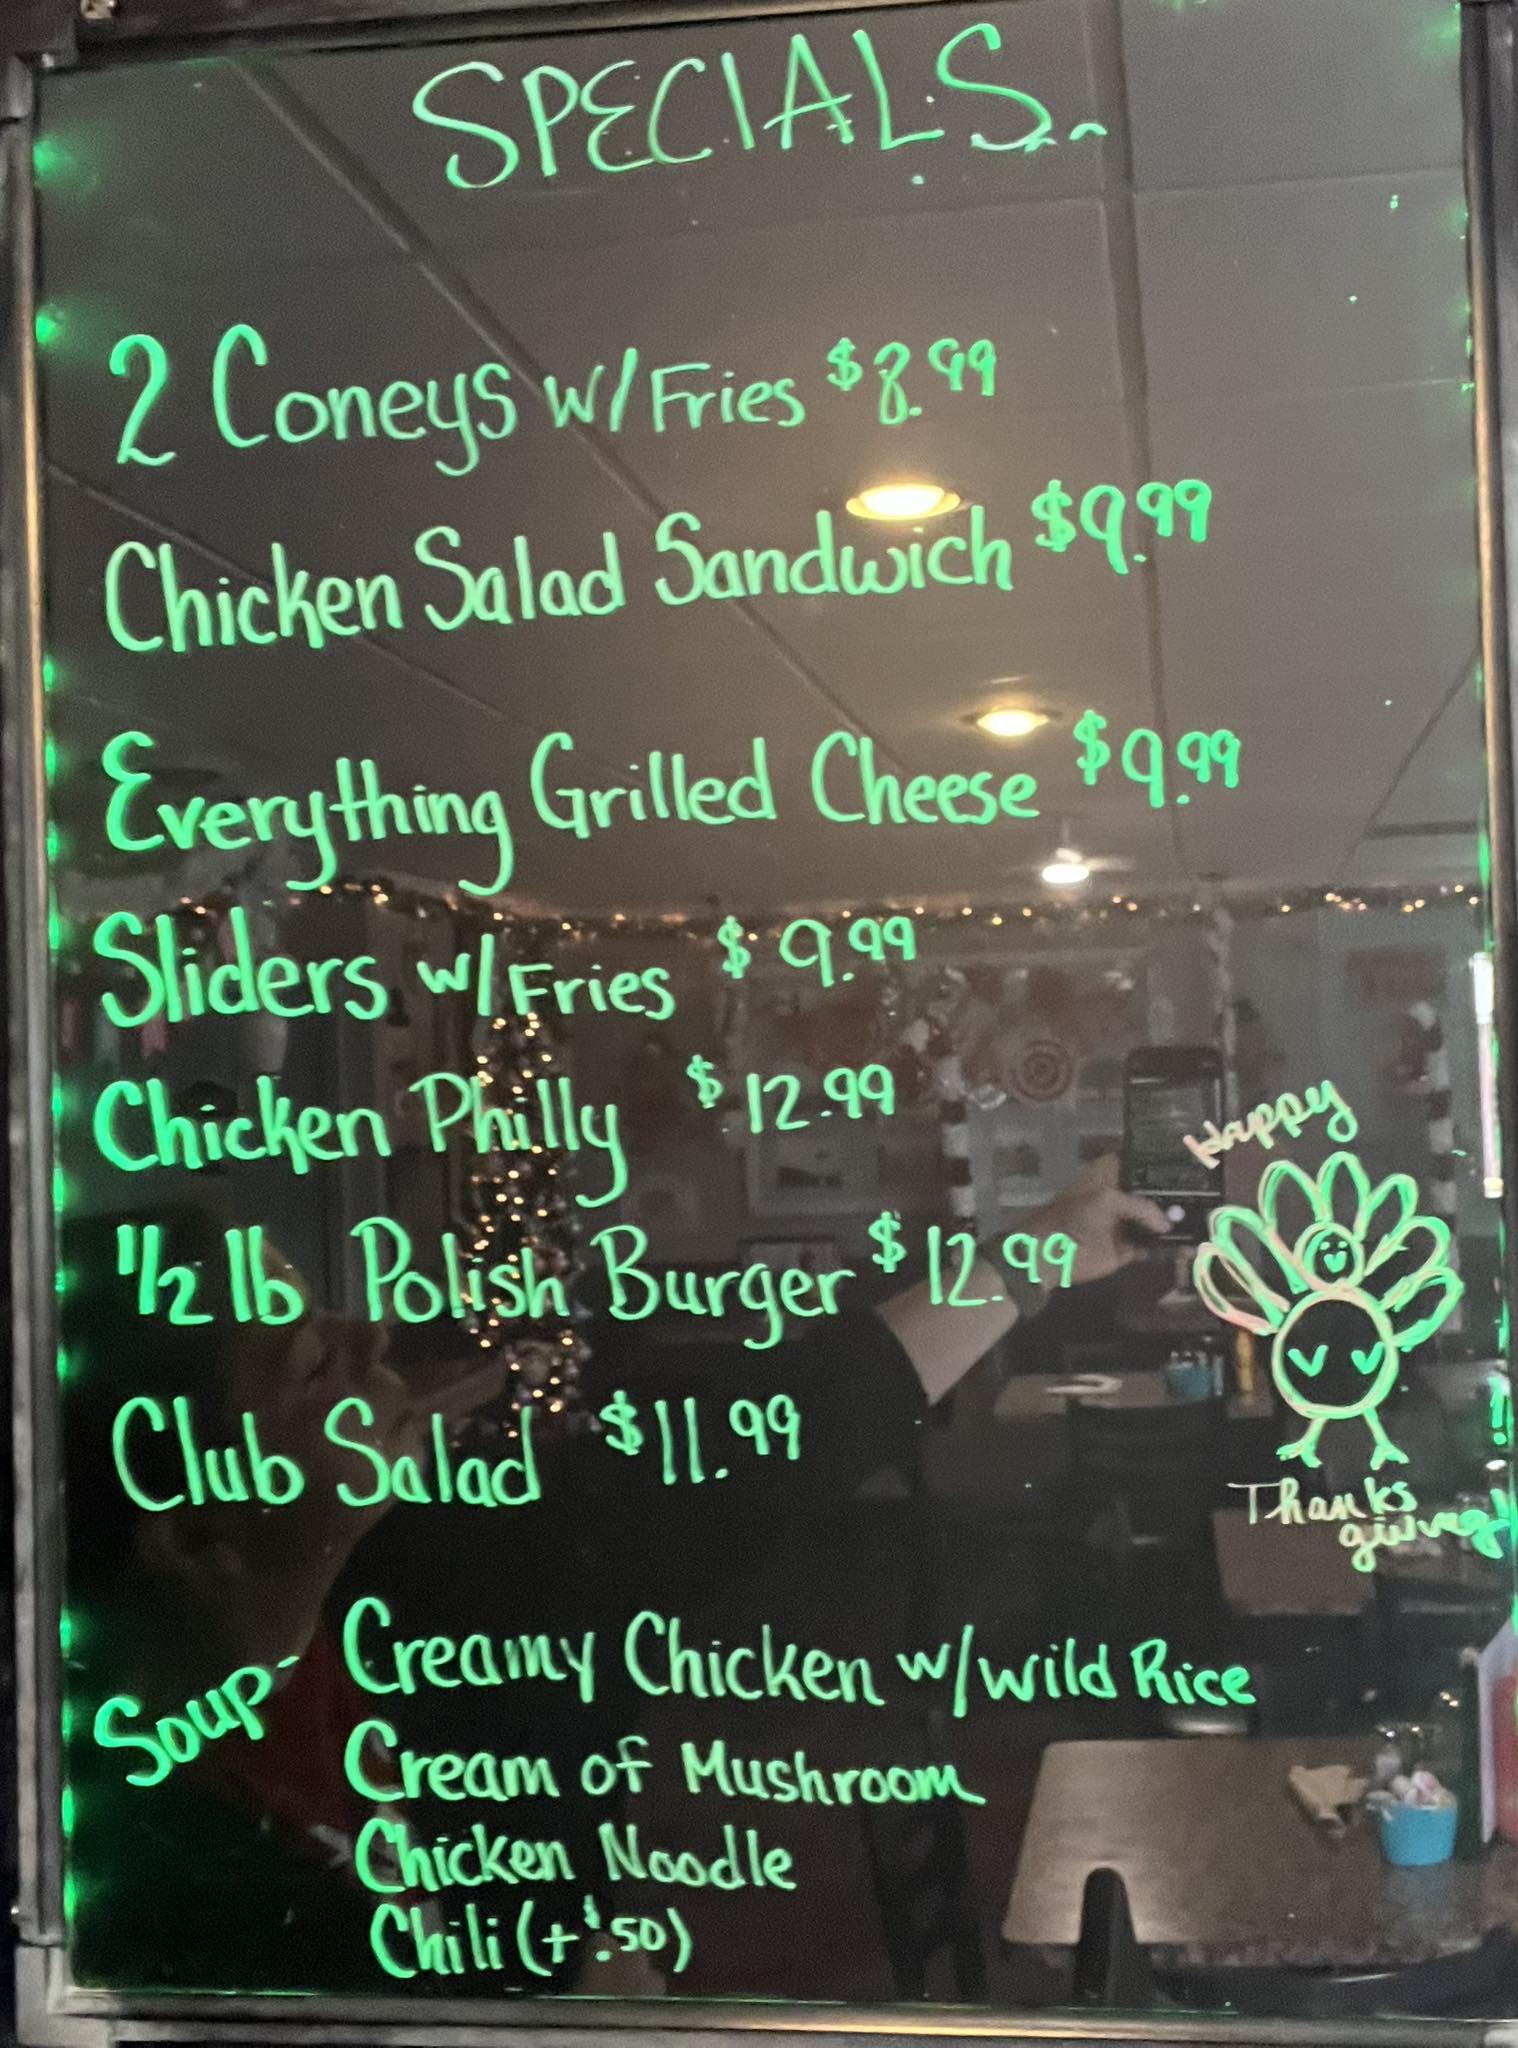 SPECIALS...
2 Coneys w/Fries $8.99
Chicken Salad Sandwich $9.99
Everything Grilled Cheese $9.99
Sliders w/Fries $9.99
Chicken Philly $12.99
1/2 lb Polish Burger $12.99
Club Salad $11.99
Happy
Thanks
giving!
Soup- Creamy Chicken w/Wild Rice
Cream of Mushroom
Chicken Noodle
Chili (+$.50)